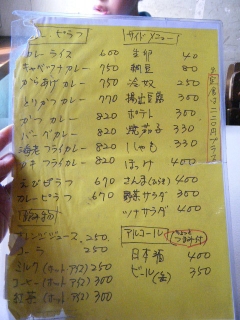 ピラフ
カレーライス 600
キャベツカレー 750
からあげカレー 750
とりかつカレー 770
かつカレー 820
ハンバーグカレー 820
海老フライカレー 820
カキフライカレー 820
えびピラフ 670
カレーピラフ 670
飲み物
オレンジジュース 250
コーラ 250
ミルク(ホット アイス) 250
コーヒー(ホット アイス) 300
紅茶(ホット アイス) 300
サイドメニュー
生卵 40
納豆 80
冷奴 250
揚出豆腐 300
ポテト 300
焼茄子 330
ししゃも 330
ほっけ 400
さんま 400
野菜サラダ 300
ツナサラダ 400
アルコール
つまみ付
日本酒 400
ビール 350